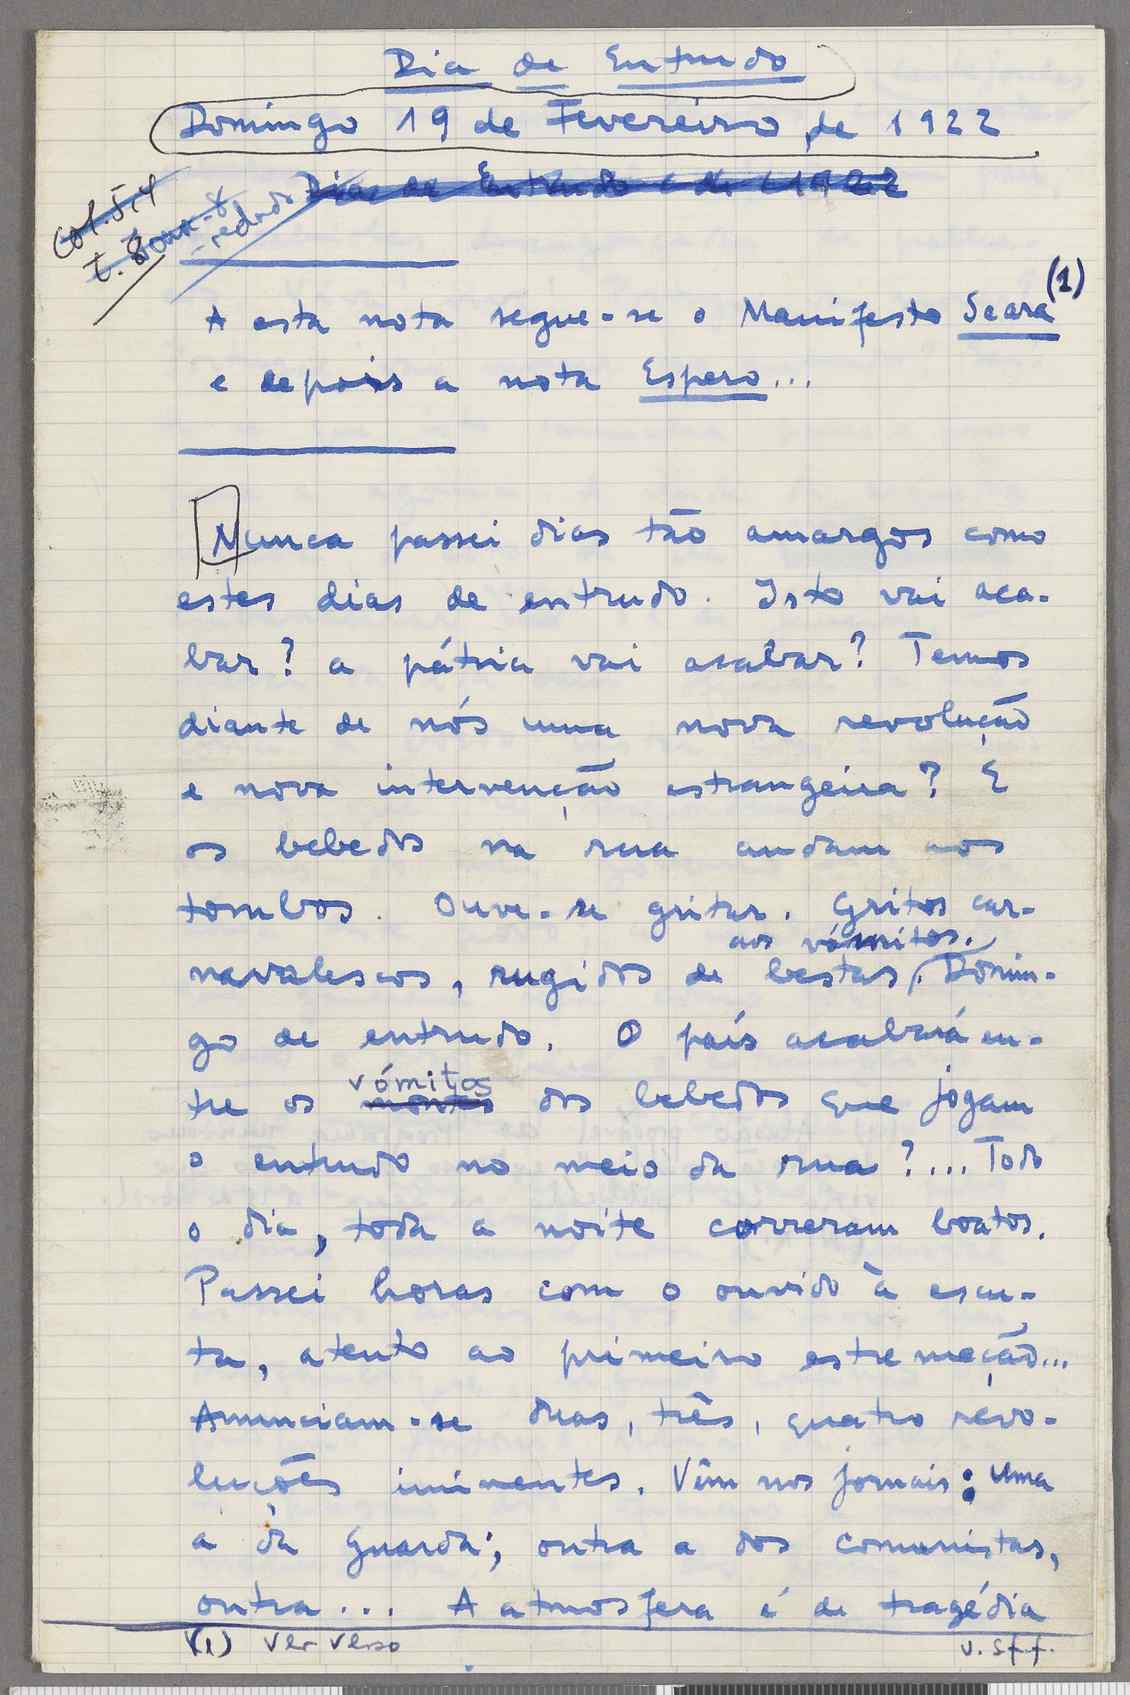 Dia de Entrudo
Domingo 19 de Fevereiro, de 1922
Dias de Entrudo de 1922
A esta nota segue-se o Manifesto Seara (1)
e depois a nota Espero...
Nunca passei dias tão amargos como
estes dias de entrudo. Isto vai aca-
bar? a pátria vai acabar? Temos
diante de nós uma nova revolução
e nova intervenção estrangeira? E
os bebedos na rua andam aos
tombos. Ouve-se gritar. Gritos car-
aos vómitos.
navalescos, rugidos de bestas, Domin-
go de entrudo. O país acabará en-
vómitos
tre os montes dos bebedos que jogam
o entrudo no meio da rua?... Todo
o dia, toda a noite correram boatos.
Passei horas com o ouvido à escu-
ta, atento ao primeiro estremeção...
Anunciam-se duas, três, quatro revo-
luções iminentes. Vêm nos jornais: uma
a da Guarda; outra a dos comunistas,
outra... A atmosfera é de tragédia
(1) Ver verso
v. sff.